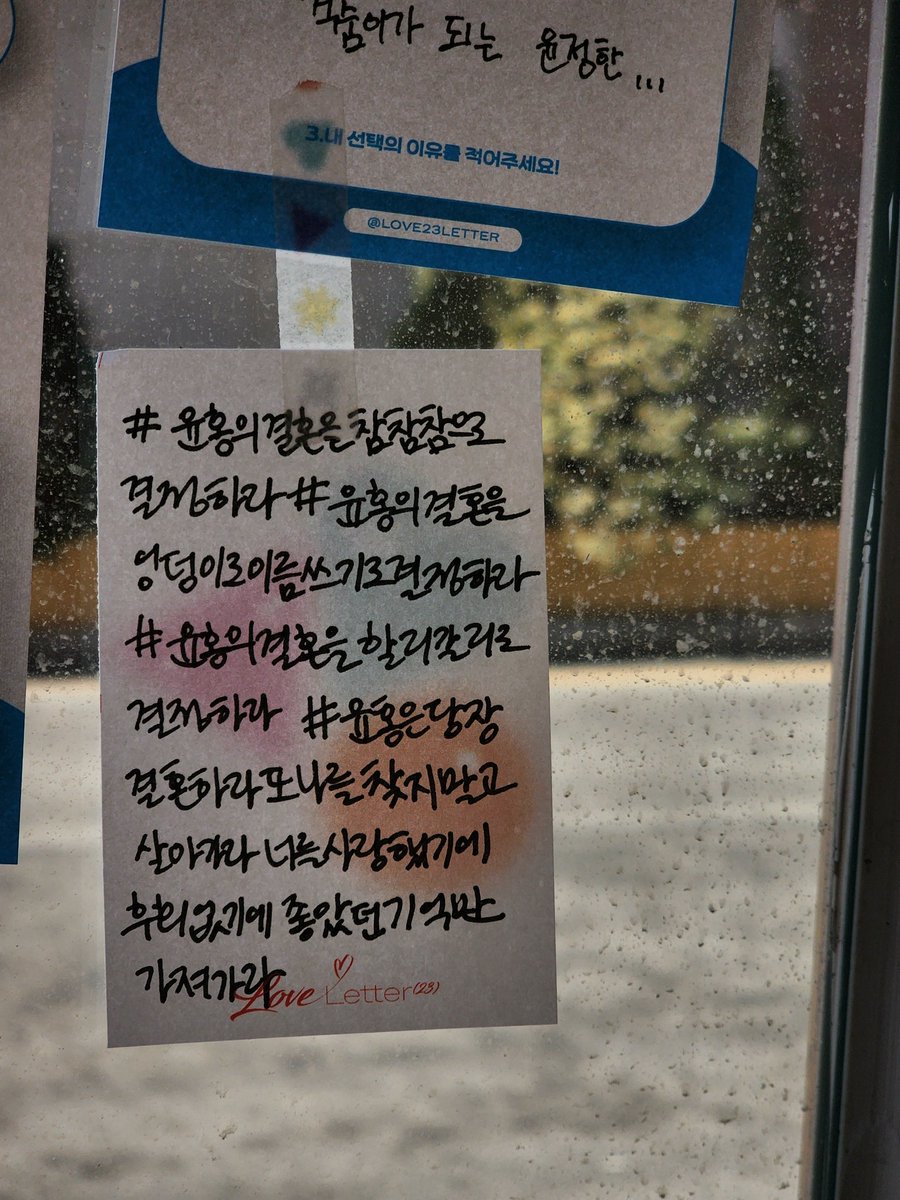 되는 윤정한...
3.내 선택의 이유를 적어주세요!
@LOVE23LETTER
# 윤홍의결혼을 참참참으로
결정하라 # 윤홍의결혼을
엉덩이로이름쓰기로결정하라
# 윤홍의결혼을 할리갈리로
결정하라 #윤홍은당장
결혼하라또나를찾지말고
살아가라 너를사랑했기에
후회없기에 좋았던기억만
가져가라
Love Letter(23)